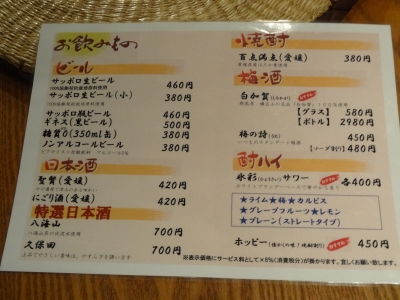 お飲みもの
ビール
サッポロ生ビール 460円
サッポロ生ビール(小) 380円
サッポロ瓶ビール 460円
ギネス(黒ビール) 500円
(350ml缶) 380円
ノンアルコールビール 380円
日本酒
聖賀(愛媛) 420円
にごり酒(愛媛) 420円
特選日本酒
八海山 700円
久保田 700円
焼酎
百点満点(愛媛) 380円
梅酒
白加賀
【グラス】 580円
【ボトル】 2980円
梅の詩 450円
【ソーダ割り】480円
酎ハイ
氷彩サワー 各400円
★ライム★梅★カルピス
★グレープフルーツ★レモン
★プレーン(ストレートタイプ)
ホッピー 450円
※表示価格にサービス料として×8%(消費税分)が掛かります。宜しくお願い致します。